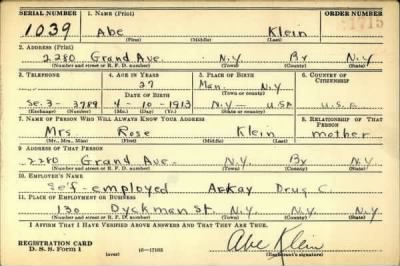 SERIAL NUMBER 1. NAME (Print) ORDER NUMBER
1039 Abe Klein 1715
(First) (Middle) (Last)
2. ADDRESS (Print)
2280 Grand Ave. N.Y. Bx N.Y
(Number and street or R. F. D. number) (Town) (County) (State)
3. TELEPHONE 4. AGE IN YEARS 5. PLACE OF BIRTH 6. COUNTRY OF CITIZENSHIP
27 Man. N.Y.
DATE OF BIRTH (Town or county)
Se. 3- 3789 4-10-1913 N.Y- USA U.S.A
(Exchange) (Number) (Mo.) (Day) (Yr.) (State or country)
7. NAME OF PERSON WHO WILL ALWAYS KNOW YOUR ADDRESS 8. RELATIONSHIP OF THAT PERSON
Mrs. Rose Klein mother
(Mr., Mrs., Miss) (First) (Middle) (Last)
9. ADDRESS OF THAT PERSON
2280 Grand Ave. N.Y. Bx N.Y
(Number and street or R. F. D. number) (Town) (County) (State)
10. EMPLOYER'S NAME
self-employed Arkay Drug C.
11. PLACE OF EMPLOYMENT OR BUSINESS
130 Dyckman St. N.Y. N.Y. N.Y
(Number and street or R. F. D. number) (Town) (County) (State)
I AFFIRM THAT I HAVE VERIFIED ABOVE ANSWERS AND THAT THEY ARE TRUE.
REGISTRATION CARD
D. S. S. Form 1 (over) Abe Klein
(Registrant's signature)